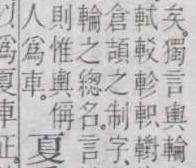 矣。獨言輿輪
軾較軫軹轛
倉頡之制字,
輪之總名。言
則惟輿偁 夏
人爲車。
以爲夏車正。